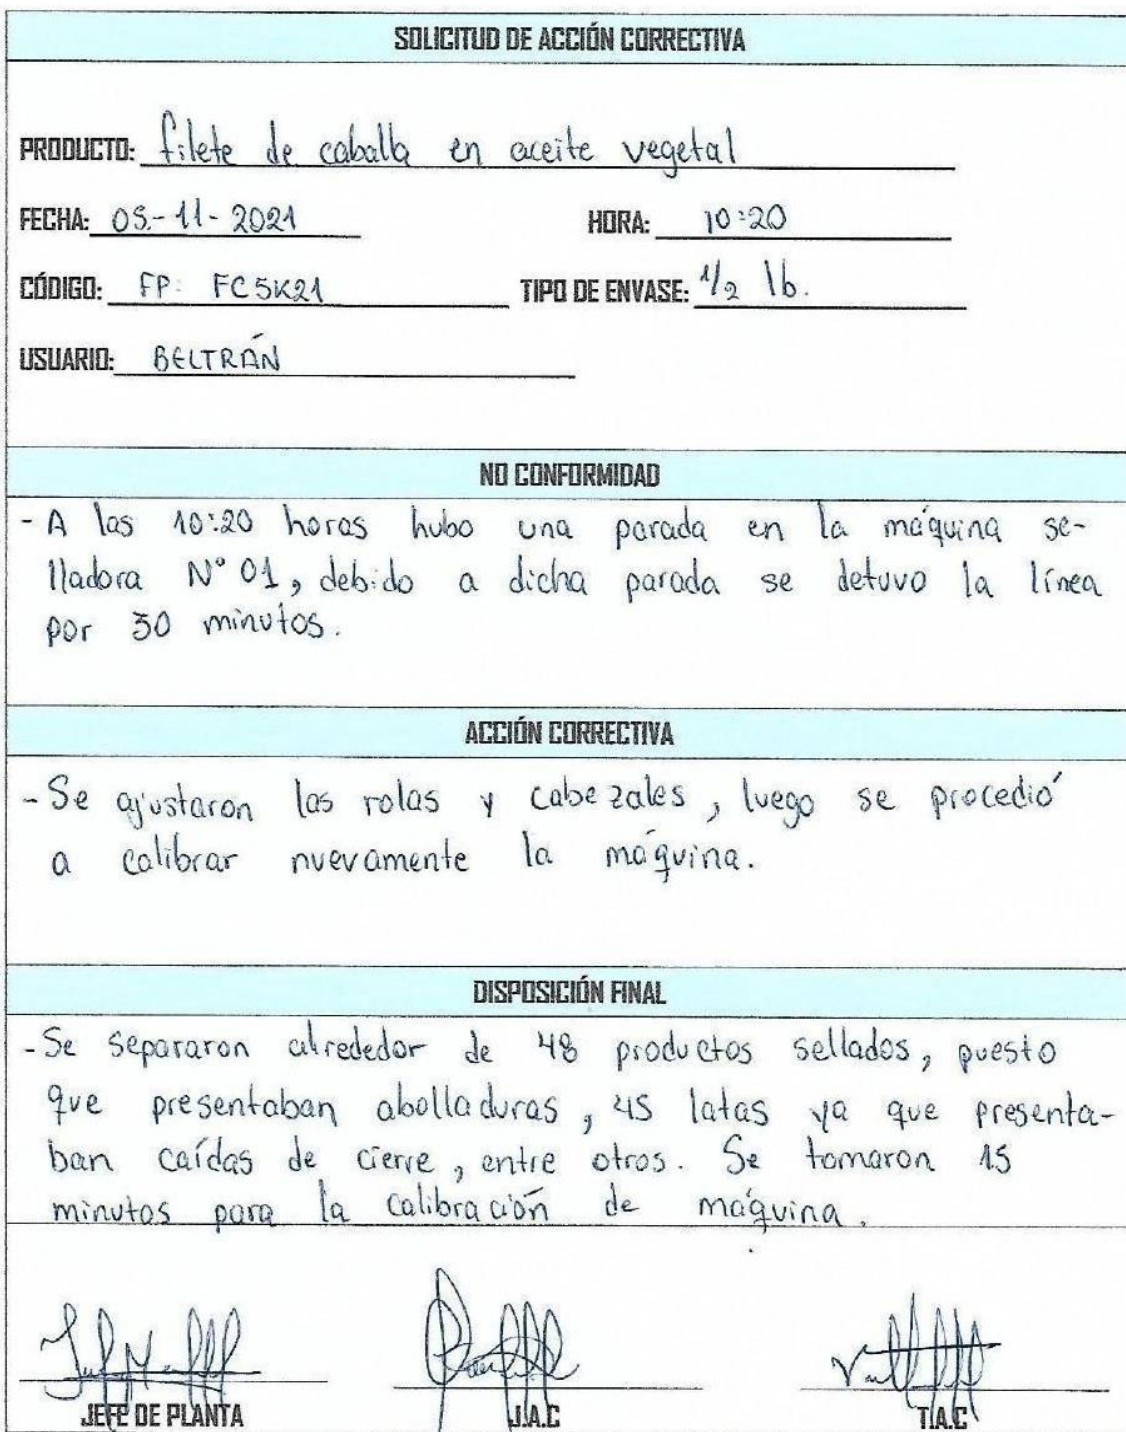 SOLICITUD DE ACCIÓN CORRECTIVA
PRODUCTO: filete de caballa en aceite vegetal
FECHA: 05-11-2021 HORA: 10:20
CÓDIGO: FP: FC5K21 TIPO DE ENVASE: 1/2 lb.
USUARIO: BELTRÁN
NO CONFORMIDAD
- A las 10:20 horas hubo una parada en la máquina se-
lladora N° 01, debido a dicha parada se detuvo la línea
por 30 minutos.
ACCIÓN CORRECTIVA
- Se ajustaron las rolas y cabezales, luego se procedió
a calibrar nuevamente la máquina.
DISPOSICIÓN FINAL
- Se separaron alrededor de 48 productos sellados, puesto
que presentaban abolladuras, 45 latas ya que presenta-
ban caídas de cierre, entre otros. Se tomaron 15
minutos para la calibración de máquina.
JEFE DE PLANTA J.A.C T.A.C